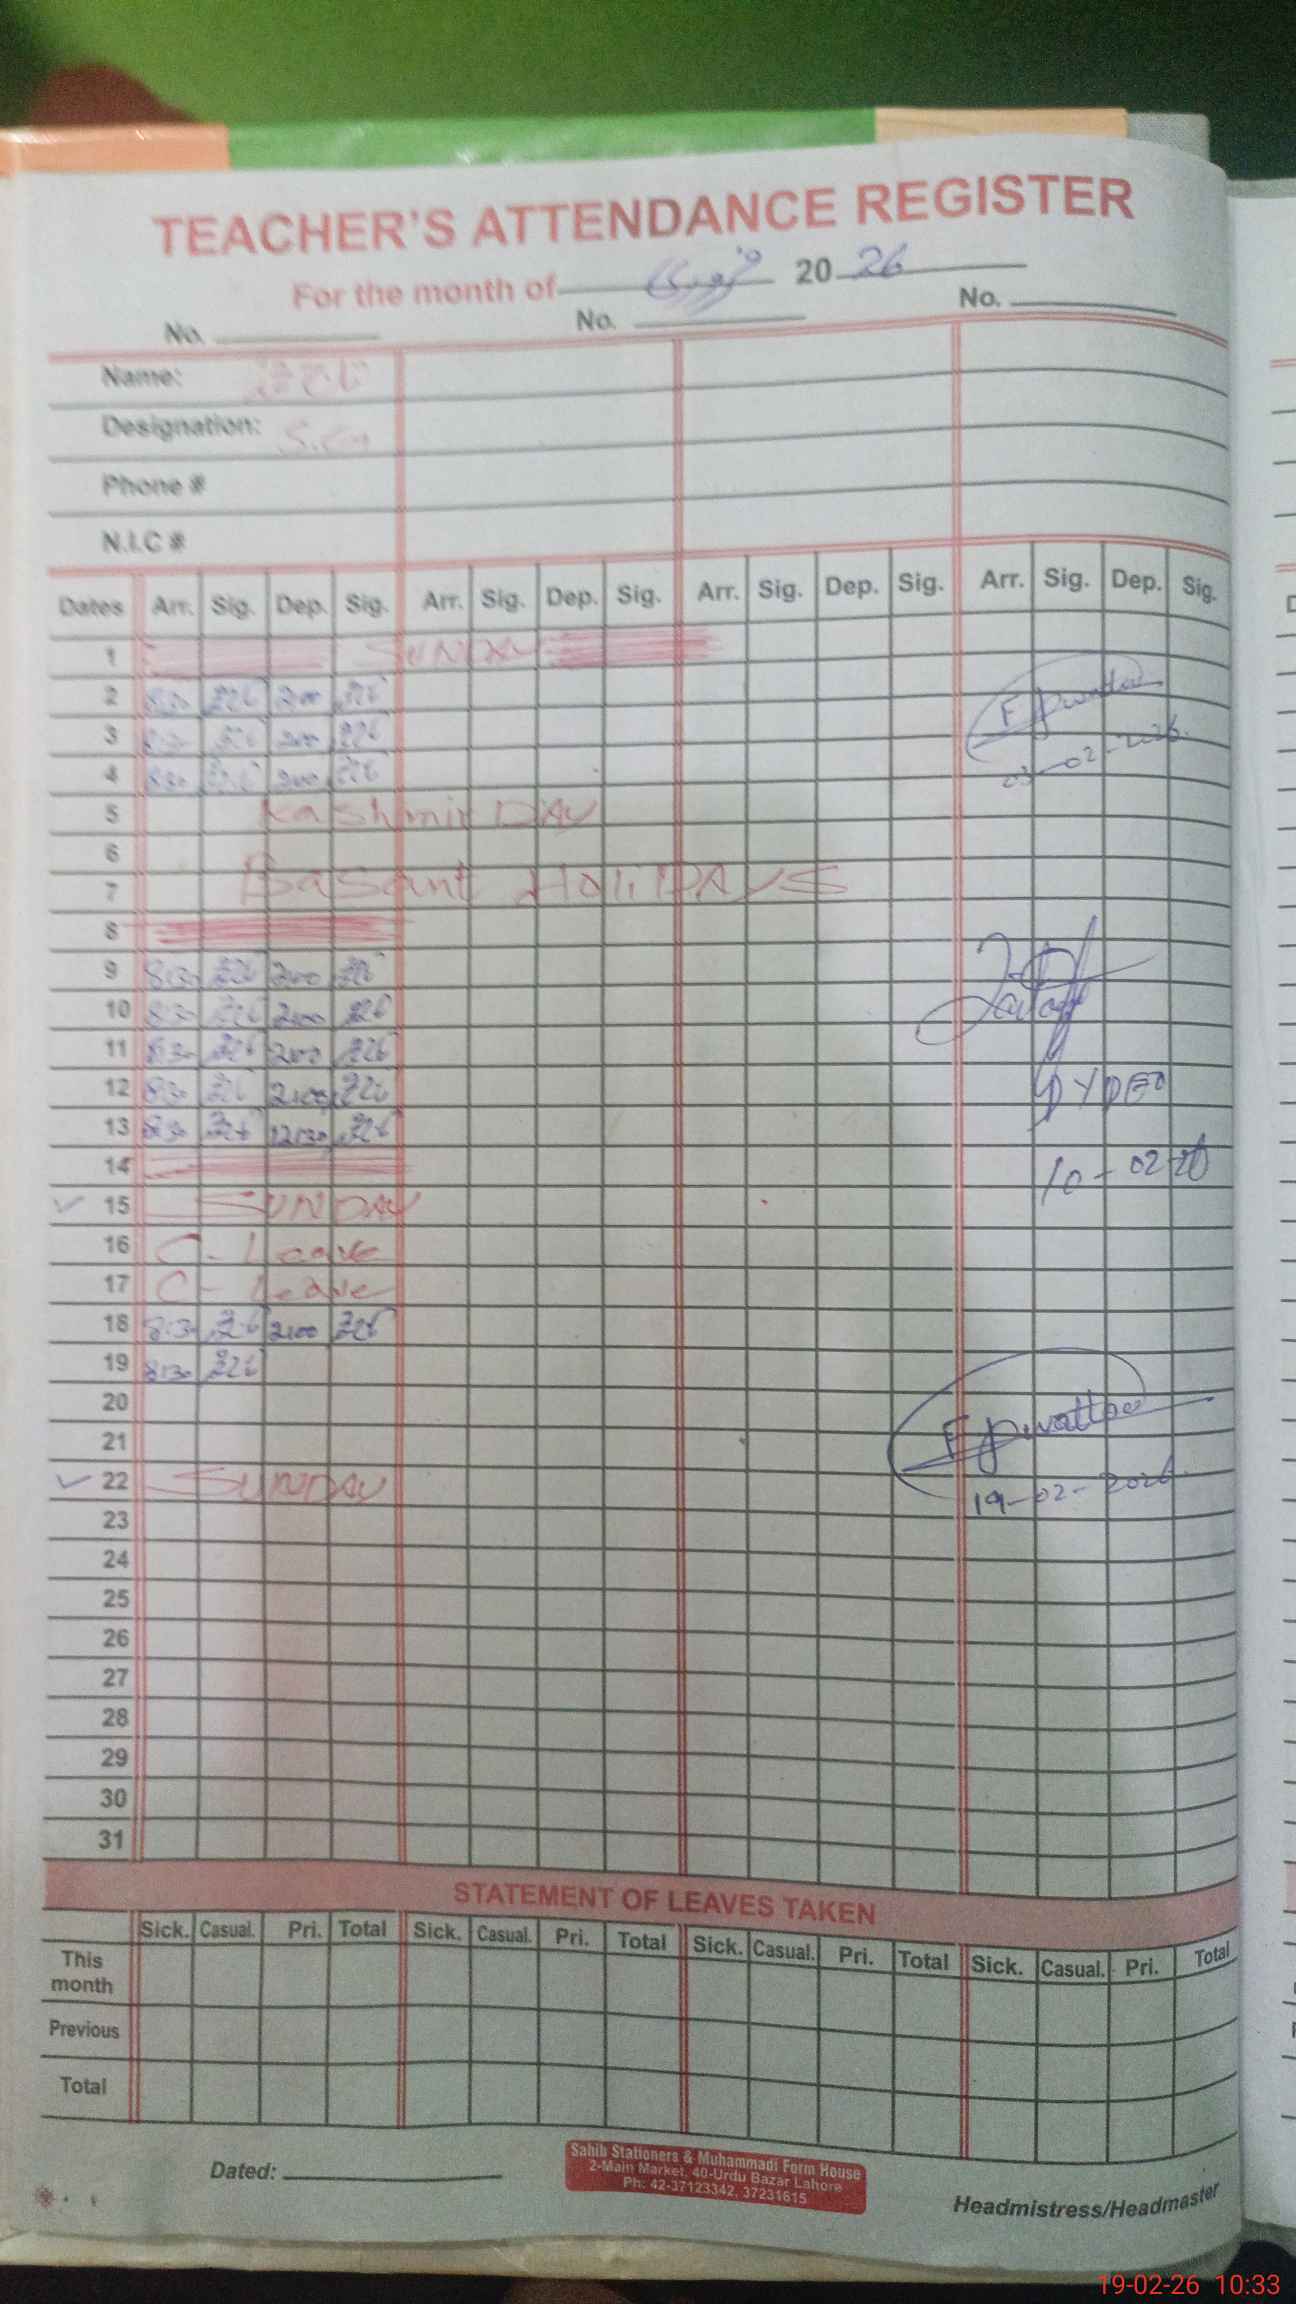 TEACHER'S ATTENDANCE REGISTER
For the month of فروری 20 26
No. No. No.
Name:
Designation:
Phone #
N.I.C #
Dates Arr. Sig. Dep. Sig. Arr. Sig. Dep. Sig. Arr. Sig. Dep. Sig. Arr. Sig. Dep. Sig.
1 SUNDAY
2 8:30 200
3 8:30 200
4 8:30 200
5 Kashmir DAY
6
7 Basant HOliDAYS
8
9 8:30 2:00
10 8:30 2:00
11 8:30 2:00
12 8:30 2:00
13 8:30 12:30
14
15 SUNDAY
16 C-Leave
17 C-Leave
18 8:30 2:00
19 8:30
20
21
22 SUNDAY
23
24
25
26
27
28
29
30
31
03-02-2026
DYDEO
10-02-26
19-02-2026
STATEMENT OF LEAVES TAKEN
Sick. Casual. Pri. Total Sick. Casual. Pri. Total Sick. Casual. Pri. Total Sick. Casual. Pri. Total
This month
Previous
Total
Dated:
Sahib Stationers & Muhammadi Form House
2-Main Market, 40-Urdu Bazar Lahore
Ph: 42-37123342, 37231615
Headmistress/Headmaster
19-02-26 10:33